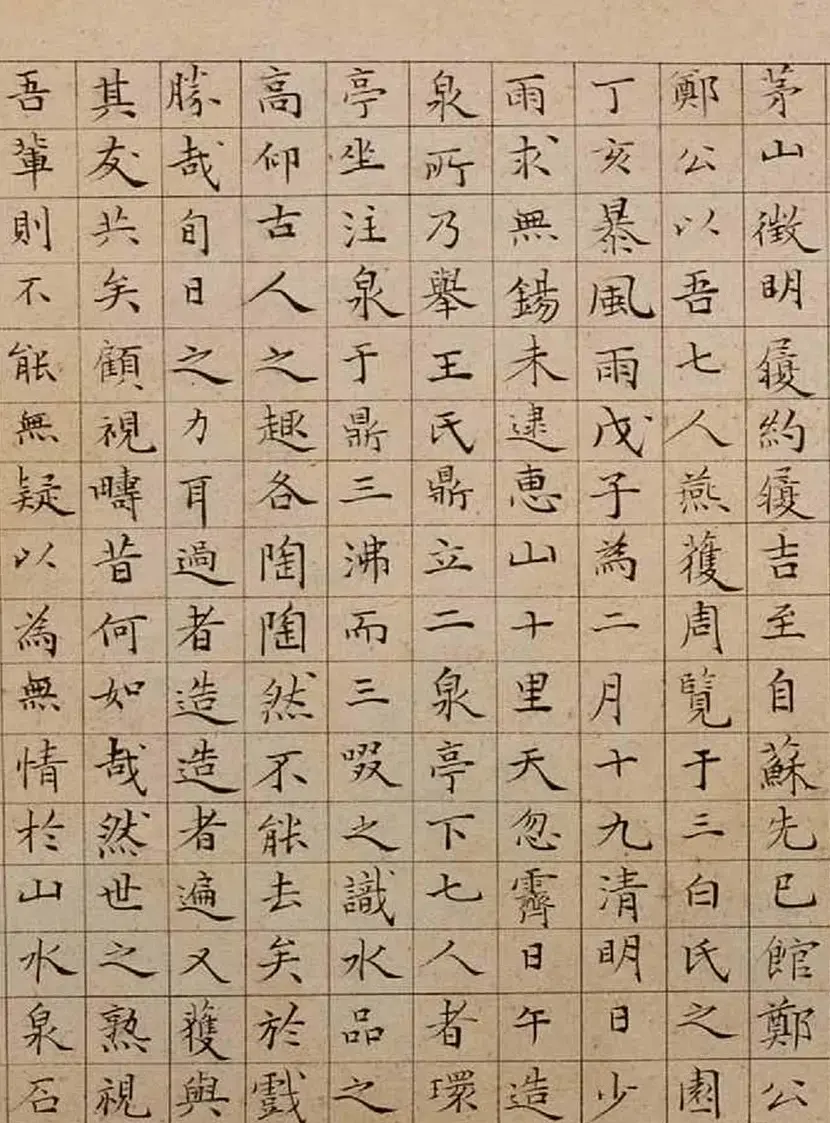 茅山徵明履約履吉至自蘇先已館鄭公
鄭公以吾七人燕獲周覽于三白氏之園
丁亥暴風雨戊子為二月十九清明日少
雨求無錫未逮惠山十里天忽霽日午造
泉所乃舉王氏鼎立二泉亭下七人者環
亭坐注泉于鼎三沸而三啜之識水品之
高仰古人之趣各陶陶然不能去矣於戲
勝哉旬日之力耳過者造造者遍又獲與
其友共矣顧視疇昔何如哉然世之熟視
吾輩則不能無疑以為無情於山水泉石